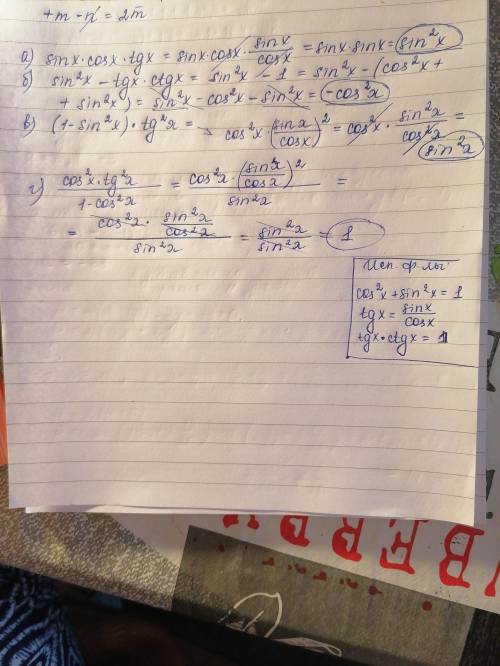 +m - n = 2m̄
а) sinx·cosx·tgx = sinx·cosx·sinx/cosx = sinx·sinx = sin²x
б) sin²x - tgx·ctgx = sin²x - 1 = sin²x - (cos²x +
+ sin²x) = sin²x - cos²x - sin²x = -cos²x
в) (1-sin²x)·tg²x = cos²x·(sinx/cosx)² = cos²x·sin²x/cos²x =
sin²x
г) cos²x·tg²x/1-cos²x = cos²x·(sinx/cosx)²/sin²x =
= cos²x·sin²x/cos²x/sin²x = sin²x/sin²x = 1
Исп. ф-лы:
cos²x + sin²x = 1
tgx = sinx/cosx
tgx·ctgx = 1
VBERDU